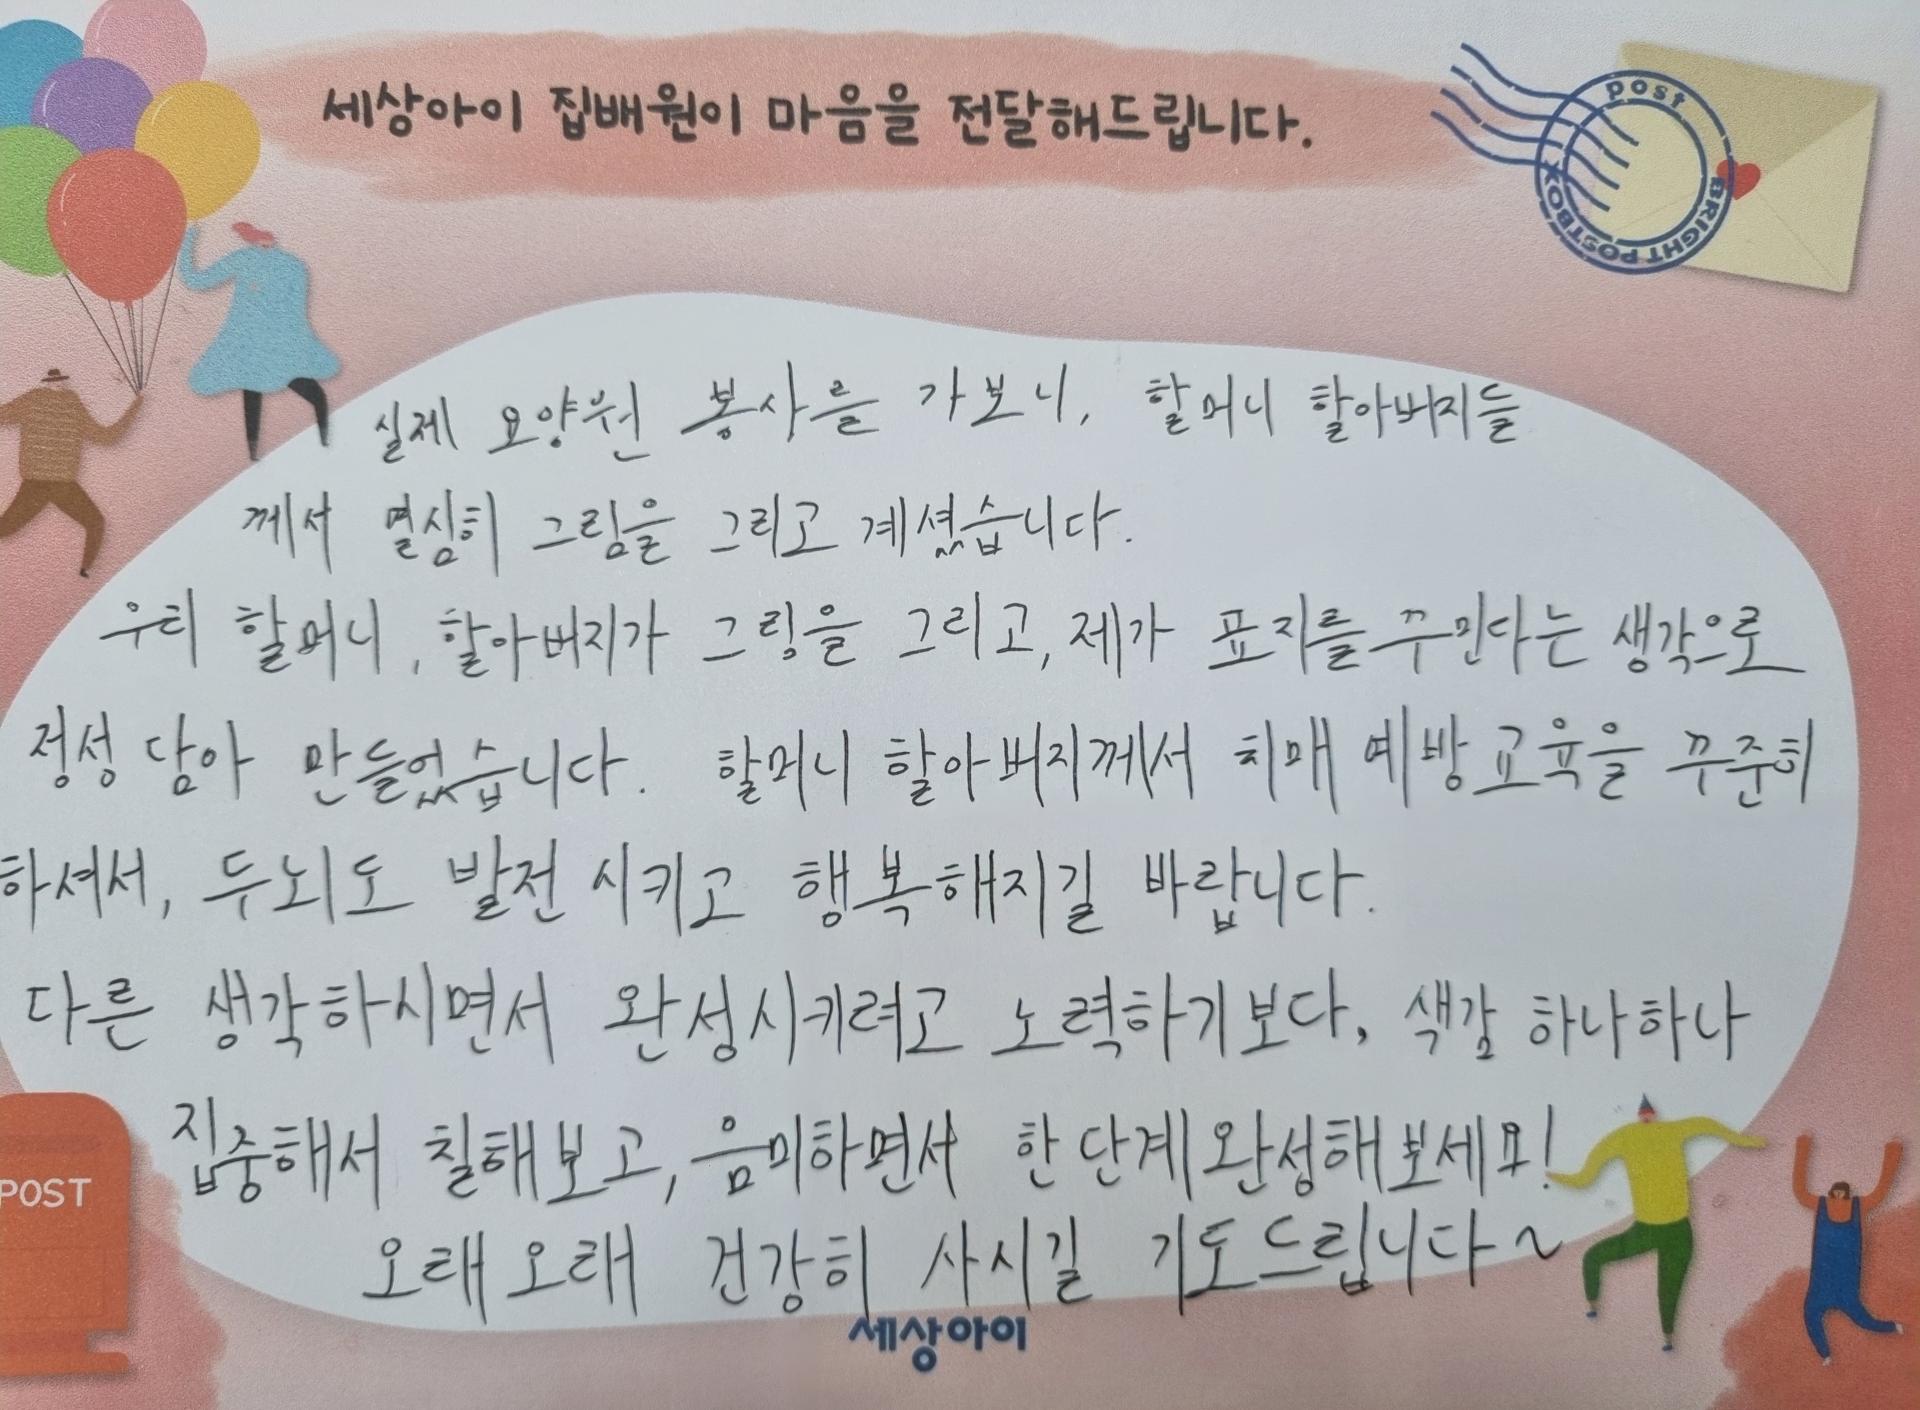 세상아이 집배원이 마음을 전달해드립니다.
post
BRIGHT POSTBOX
실제 요양원 봉사를 가보니, 할머니 할아버지들
께서 열심히 그림을 그리고 계셨습니다.
우리 할머니, 할아버지가 그림을 그리고, 제가 표지를 꾸민다는 생각으로
정성 담아 만들었습니다. 할머니 할아버지께서 치매 예방교육을 꾸준히
하셔서, 두뇌도 발전시키고 행복해지길 바랍니다.
다른 생각하시면서 완성시키려고 노력하기보다, 색감 하나하나
집중해서 칠해보고, 음미하면서 한단계 완성해보세요!
오래오래 건강히 사시길 기도드립니다~
POST
세상아이